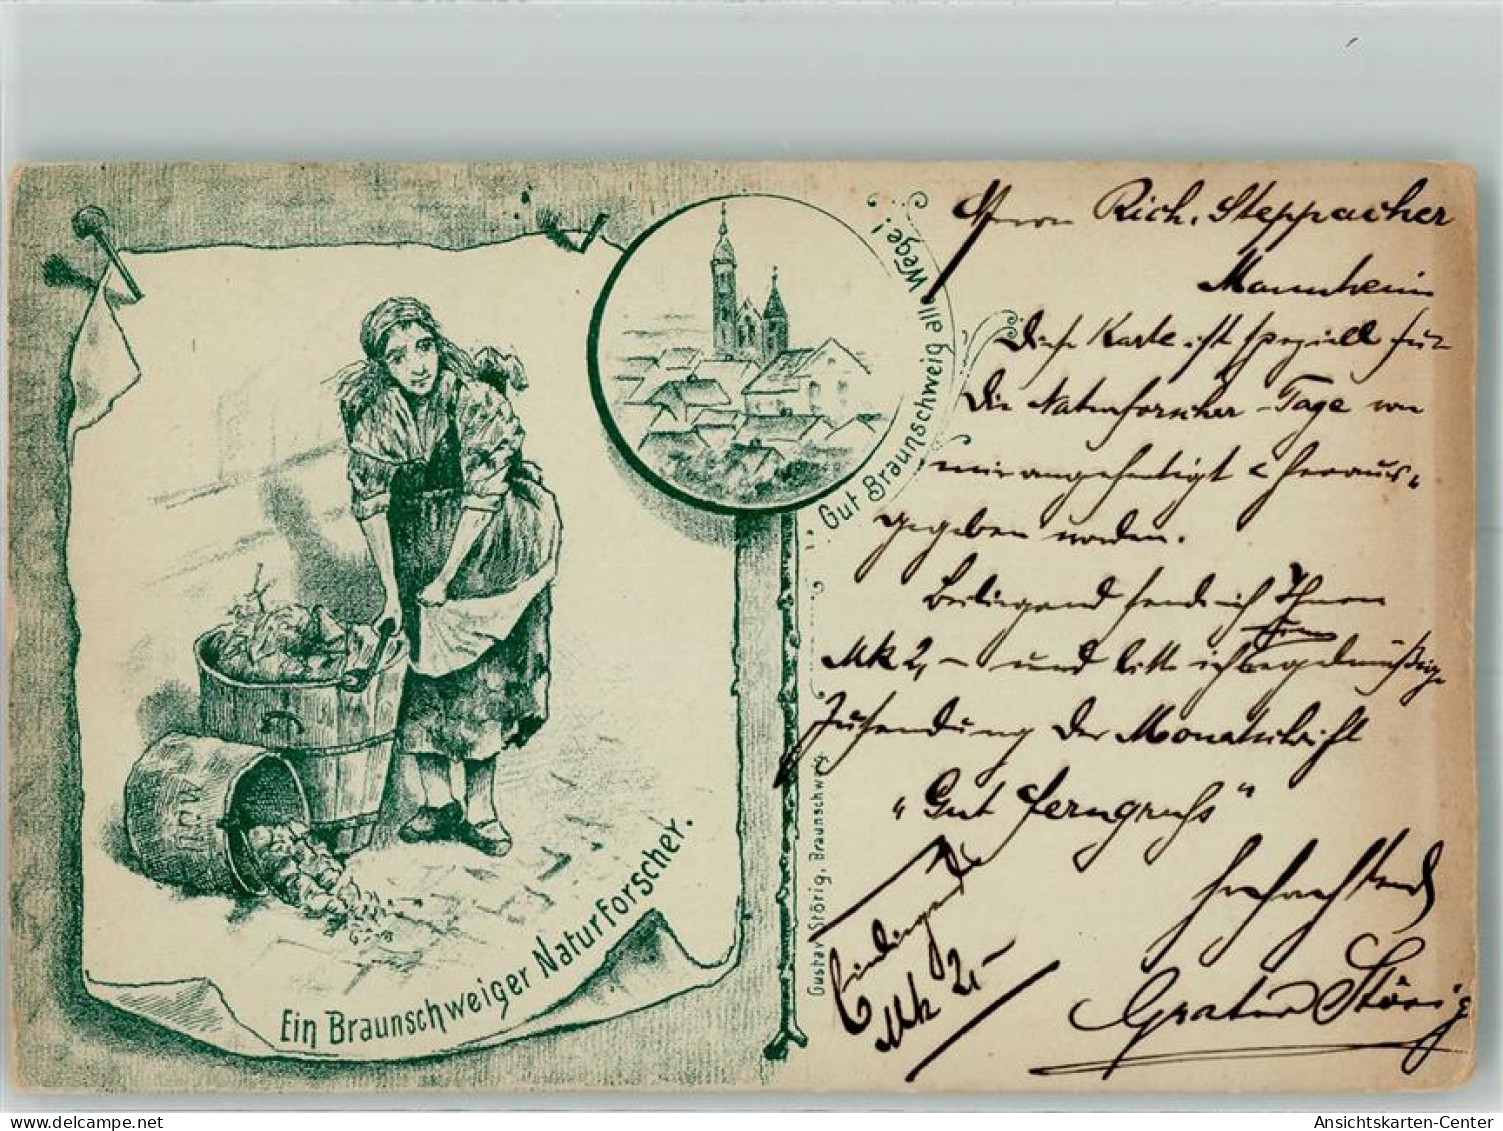 Herrn Rich. Steppacher
Mannheim
Diese Karte ist speziell für
die Naturforscher-Tage von
mir angefertigt & heraus-
gegeben worden.
Beiliegend sende ich Ihnen
Mk 2,- und bitte ich um
Zusendung der Monatsschrift
"Gut Ferngruß"
Hochachtend
Gustav Störig
Mk 2,-
Gut Braunschweig alle Wege!
Ein Braunschweiger Naturforscher.
Gustav Störig, Braunschweig.
Ansichtskarten-Center